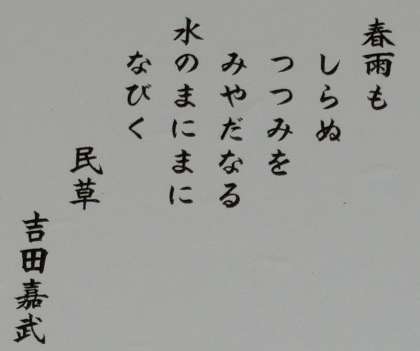 春雨も
しらぬ
つつみを
みやだなる
水のまにまに
なびく
民草
吉田嘉武